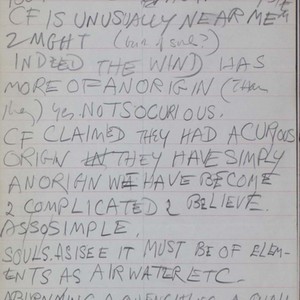 CF IS UNUSUALLY NEAR ME
2 MGHT (
INDEED THE WIND HAS
MORE OF AN ORIGIN (than
they) yes. NOT SO CURIOUS.
CF CLAIMED THEY HAD A CURIOUS
ORIGN THEY HAVE SIMPLY
AN ORIAN WE HAVE BECOME
2 COMPLICATED 2 BELIEVE
AS SO SIMPLE.
SOULS. AS I SEE IT MUST BE OF ELEM-
ENTS AS AIR WATER ETC.